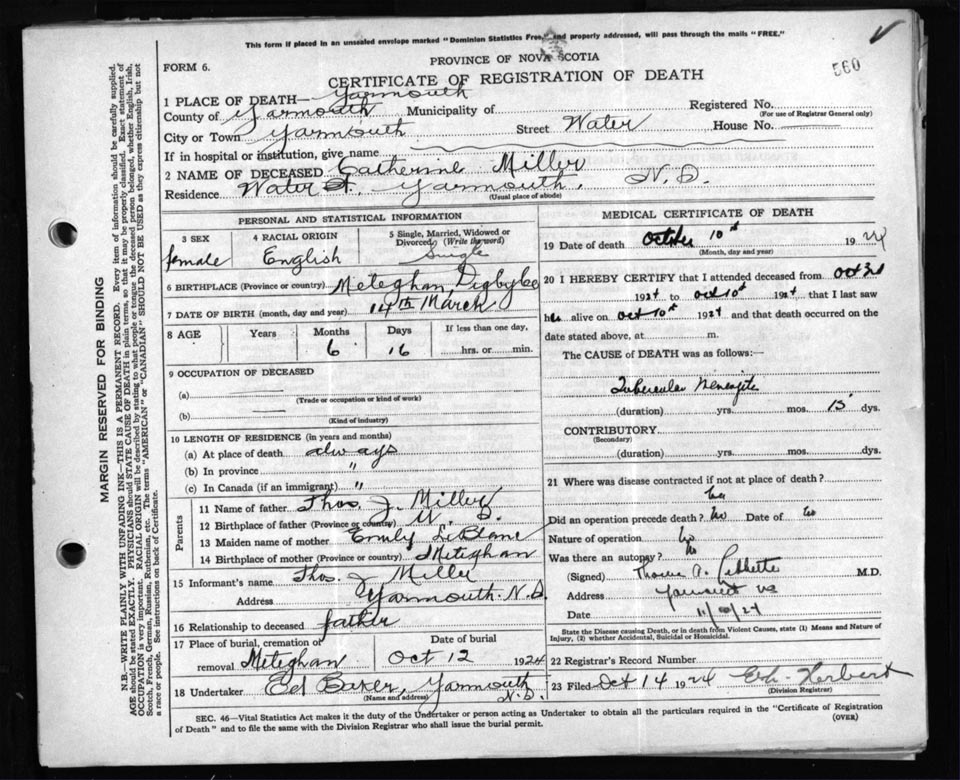 This form if placed in an unsealed envelope marked "Dominion Statistics Free," and properly addressed, will pass through the mails "FREE."
560
FORM 6.
PROVINCE OF NOVA SCOTIA
CERTIFICATE OF REGISTRATION OF DEATH
1 PLACE OF DEATH— Yarmouth
County of Yarmouth Municipality of Registered No.
(For use of Registrar General only)
City or Town Yarmouth Street Water House No.
If in hospital or institution, give name
2 NAME OF DECEASED Catherine Miller
Residence Water St. Yarmouth, N.S.
(Usual place of abode)
PERSONAL AND STATISTICAL INFORMATION
3 SEX 4 RACIAL ORIGIN 5 Single, Married, Widowed or Divorced (Write the word)
female English Single
6 BIRTHPLACE (Province or country) Meteghan, Digby Co
7 DATE OF BIRTH (month, day and year) 14th March
8 AGE Years Months Days If less than one day,
6 16 hrs. or min.
9 OCCUPATION OF DECEASED
(a)
(Trade or occupation or kind of work)
(b)
(Kind of industry)
10 LENGTH OF RESIDENCE (in years and months)
(a) At place of death always
(b) In province "
(c) In Canada (if an immigrant) "
Parents
11 Name of father Thos. J. Miller
12 Birthplace of father (Province or country)
13 Maiden name of mother Emily LeBlanc
14 Birthplace of mother (Province or country) Meteghan
15 Informant's name Thos. J Miller
Address Yarmouth. N.S.
16 Relationship to deceased father
17 Place of burial, cremation or removal Meteghan Date of burial Oct 12 1924
18 Undertaker Ed Baker, Yarmouth N.S.
(Name and address)
MEDICAL CERTIFICATE OF DEATH
19 Date of death October 10th 1924
(Month, day and year)
20 I HEREBY CERTIFY that I attended deceased from Oct 3d
1924 to Oct 10th 1924, that I last saw
h alive on Oct 10th 1924 and that death occurred on the
date stated above, at m.
The CAUSE of DEATH was as follows:—
Tubercular Meningitis
(duration) yrs. mos. 15 dys.
CONTRIBUTORY
(Secondary)
(duration) yrs. mos. dys.
21 Where was disease contracted if not at place of death?
Did an operation precede death? No Date of
Nature of operation
Was there an autopsy? No
(Signed) M.D.
Address Yarmouth NS
Date
State the Disease causing Death, or in death from Violent Causes, state (1) Means and Nature of Injury, (2) whether Accidental, Suicidal or Homicidal.
22 Registrar's Record Number
23 Filed Oct 14 1924 Herbert
(Division Registrar)
SEC. 46—Vital Statistics Act makes it the duty of the Undertaker or person acting as Undertaker to obtain all the particulars required in the "Certificate of Registration
of Death" and to file the same with the Division Registrar who shall issue the burial permit.
(OVER)
MARGIN RESERVED FOR BINDING
N.B.—WRITE PLAINLY WITH UNFADING INK—THIS IS A PERMANENT RECORD. Every item of information should be carefully supplied.
AGE should be stated EXACTLY. PHYSICIANS should STATE CAUSE OF DEATH in plain terms, so that it may be properly classified. Exact statement of
OCCUPATION is very important. RACIAL ORIGIN will be described by stating to what people or tongue the deceased person belonged, whether English, Irish,
Scotch, French, German, Russian, Ruthenian, etc. The terms "AMERICAN" or "CANADIAN" SHOULD NOT BE USED as they express citizenship but not
a race or people. See instructions on back of Certificate.